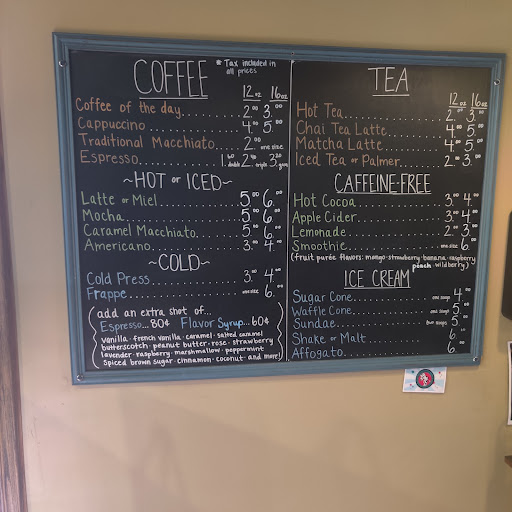 COFFEE
* Tax included in
all prices
12 oz 16 oz
Coffee of the day........ 2.00 3.00
Cappuccino ........ 4.00 5.00
Traditional Macchiato..... 2.00 one size
Espresso........ double 2. triple 3.
~HOT or ICED~
Latte or Miel........ 5.00 6.00
Mocha........ 5.00 6.00
Caramel Macchiato...... 5.00 6.00
Americano........ 3.00 4.00
~COLD~
Cold Press........ 3.00 4.00
Frappe........ one size 6.00
add an extra shot of...
Espresso...80¢ Flavor Syrup...60¢
vanilla · french vanilla · caramel · salted caramel
butterscotch · peanut butter · rose · strawberry
lavender · raspberry · marshmallow · peppermint
spiced brown sugar · cinnamon · coconut · and more!
TEA
12 oz 16 oz
Hot Tea........ 2.00 3.00
Chai Tea Latte........ 4.00 5.00
Matcha Latte........ 4.00 5.00
Iced Tea or Palmer...... 2.00 3.00
CAFFEINE-FREE
Hot Cocoa........ 3.00 4.00
Apple Cider........ 3.00 4.00
Lemonade........ 2.00 3.00
Smoothie........ one size 6.00
(fruit purée flavors: mango · strawberry · banana · raspberry
peach wildberry)
ICE CREAM
Sugar Cone........ one scoop 4.00
Waffle Cone........ one scoop 5.00
Sundae........ two scoops 5.00
Shake or Malt........ 6.00
Affogato........ 6.00